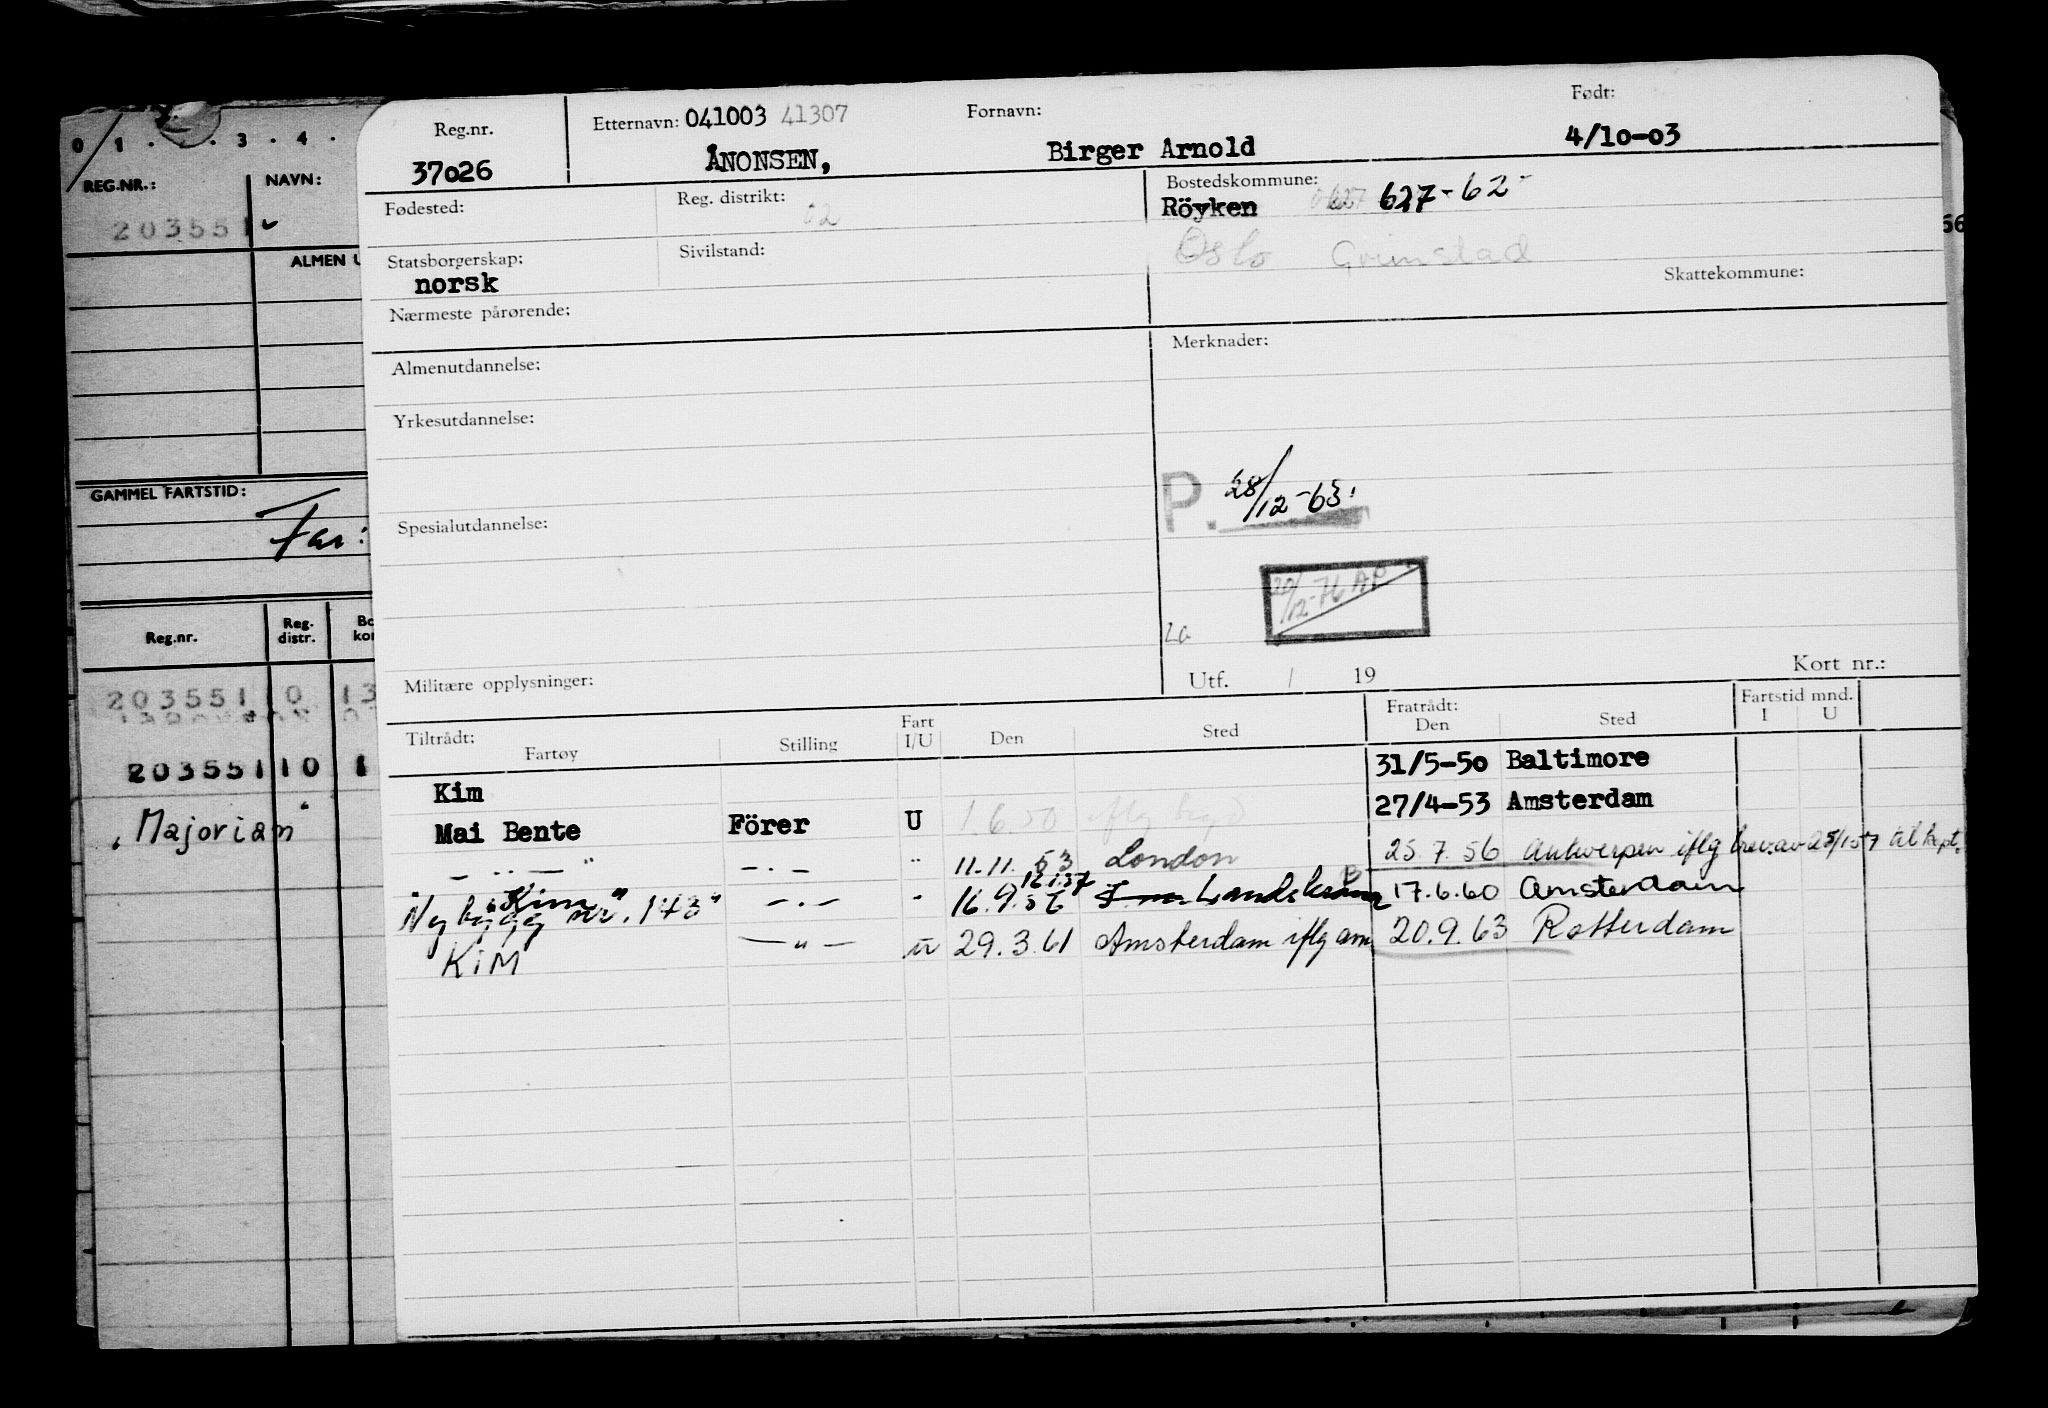 0 1 . . 3 . 4 .
REG.NR.: NAVN:
203551
ALMEN U
GAMMEL FARTSTID:
Far:
Reg.nr. Reg. distr. Bo kor
203551 0 13
203551 10 1
"Majorian"
Reg.nr. Etternavn: 041003 41307 Fornavn: Født:
37026 ÅNONSEN, Birger Arnold 4/10-03
Fødested: Reg. distrikt: 02 Bostedskommune:
Röyken 0627 627-62-
Statsborgerskap: Sivilstand: Oslo Grimstad
norsk Skattekommune:
Nærmeste pårørende:
Almenutdannelse: Merknader:
Yrkesutdannelse:
P. 28/12-63.
Spesialutdannelse:
30/12-76 AP
La
Militære opplysninger: Utf. / 19 Kort nr.:
Tiltrådt: Fratrådt: Fartstid mnd.
Fartøy Stilling Fart I/U Den Sted Den Sted I U
Kim 31/5-50 Baltimore
Mai Bente Förer U 1.6.50 iflg 27/4-53 Amsterdam
- " - " - . - " 11.11.53 London 25.7.56 Antwerpen iflg brev. av 25/1 57 til kapt.
"Kim" 16.1.57
"Nybygg nr. 143" - . - " 16.9.56 Landskrona 17.6.60 Amsterdam
KIM - " - U 29.3.61 Amsterdam iflg am 20.9.63 Rotterdam